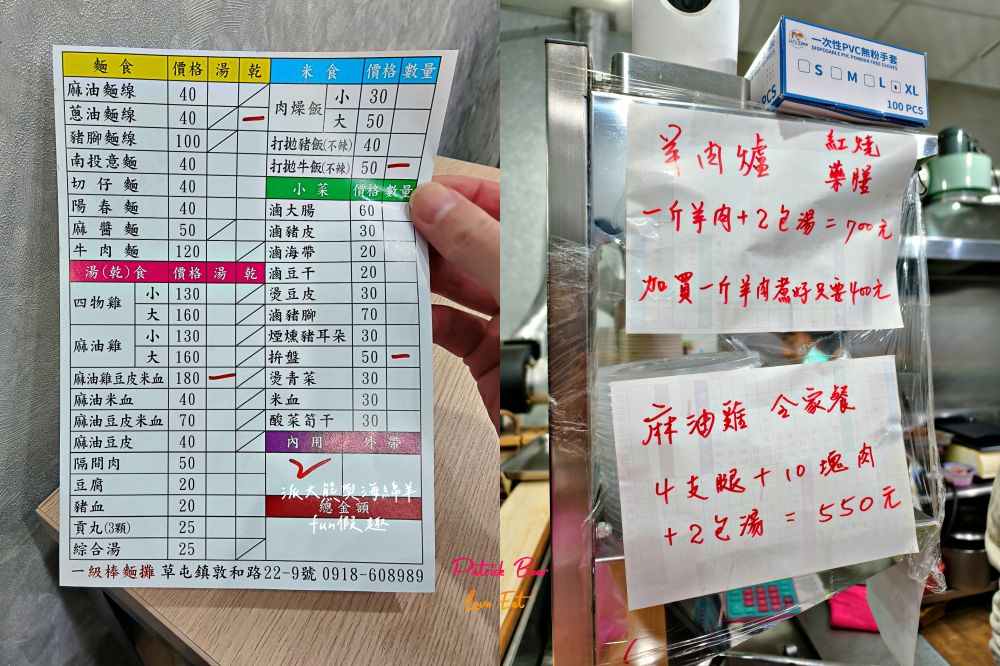 麵食 價格 湯 乾
麻油麵線 40
蔥油麵線 40
豬腳麵線 100
南投意麵 40
切仔麵 40
陽春麵 40
麻醬麵 50
牛肉麵 120
湯(乾)食 價格 湯 乾
四物雞 小 130
大 160
麻油雞 小 130
大 160
麻油雞豆皮米血 180
麻油米血 40
麻油豆皮米血 70
麻油豆皮 40
隔間肉 50
豆腐 20
豬血 20
貢丸(3顆) 25
綜合湯 25
米食 價格 數量
肉燥飯 小 30
大 50
打拋豬飯(不辣) 40
打拋牛飯(不辣) 50
小菜 價格 數量
滷大腸 60
滷豬皮 30
滷海帶 20
滷豆干 20
燙豆皮 30
滷豬腳 70
煙燻豬耳朵 30
拚盤 50
燙青菜 30
米血 30
酸菜筍干 30
內用 外帶
派大熊與海綿羊
總金額
fun假趣
一級棒麵攤 草屯鎮敦和路22-9號 0918-608989
Patrick Bear
Love Eat
一次性PVC無粉手套
DISPOSABLE PVC POWDER FREE GLOVES
S M L XL
100 PCS
PCS
羊肉爐 紅燒
藥膳
一斤羊肉+2包湯=700元
加買一斤羊肉煮好只要400元
麻油雞 全家餐
4支腿+10塊肉
+2包湯=550元